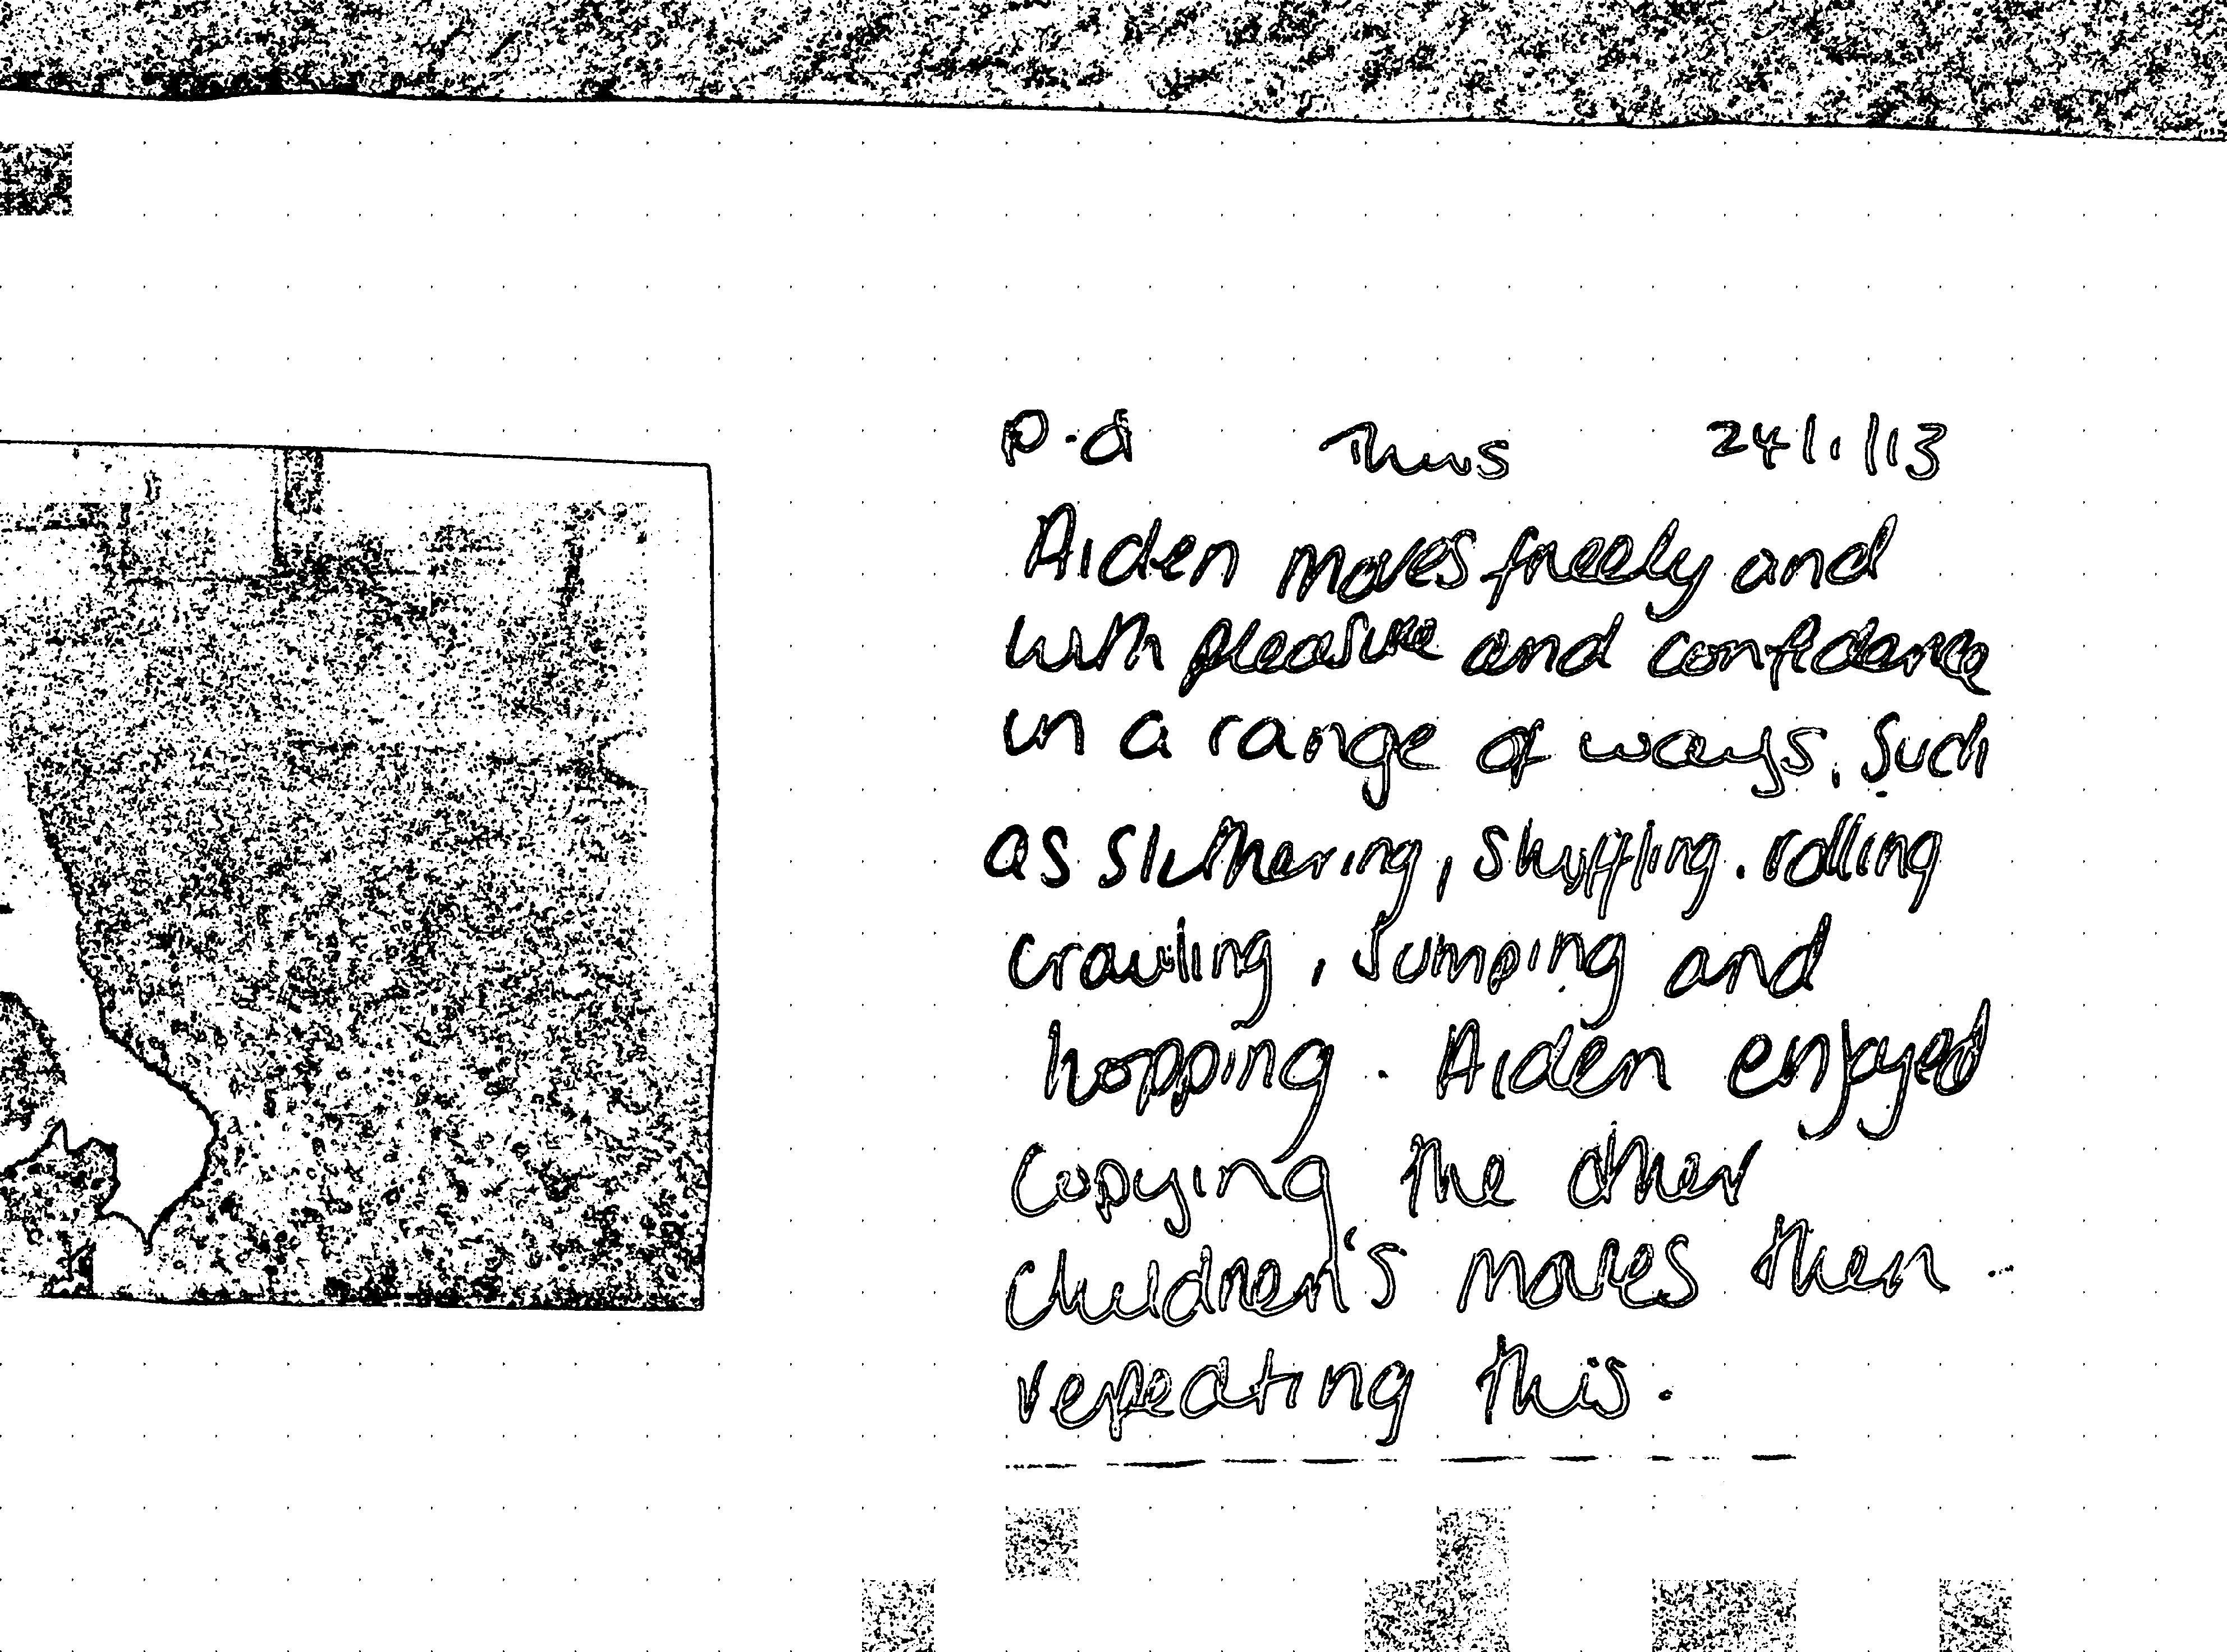 P.d Thurs 24/1/13
Aiden moves freely and
with pleasure and confidence
in a range of ways, such
as slithering, shuffling. rolling
crawling, Jumping and
hopping. Aiden enjoyed
copying the other
children's moves then
repeating this.